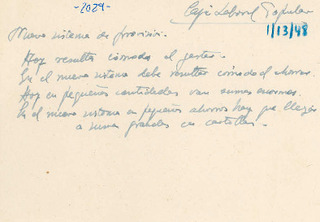 -2029-
Caja Laboral Popular
1/13/48
Nuevo sistema de provisión.
Hoy resulta cómodo el gastar.
En el nuevo sistema debe resultar cómodo el ahorrar.
Hoy en pequeñas cantidades van sumas enormes.
En el nuevo sistema en pequeños ahorros hay que llegar
a sumas grandes en cartillas.